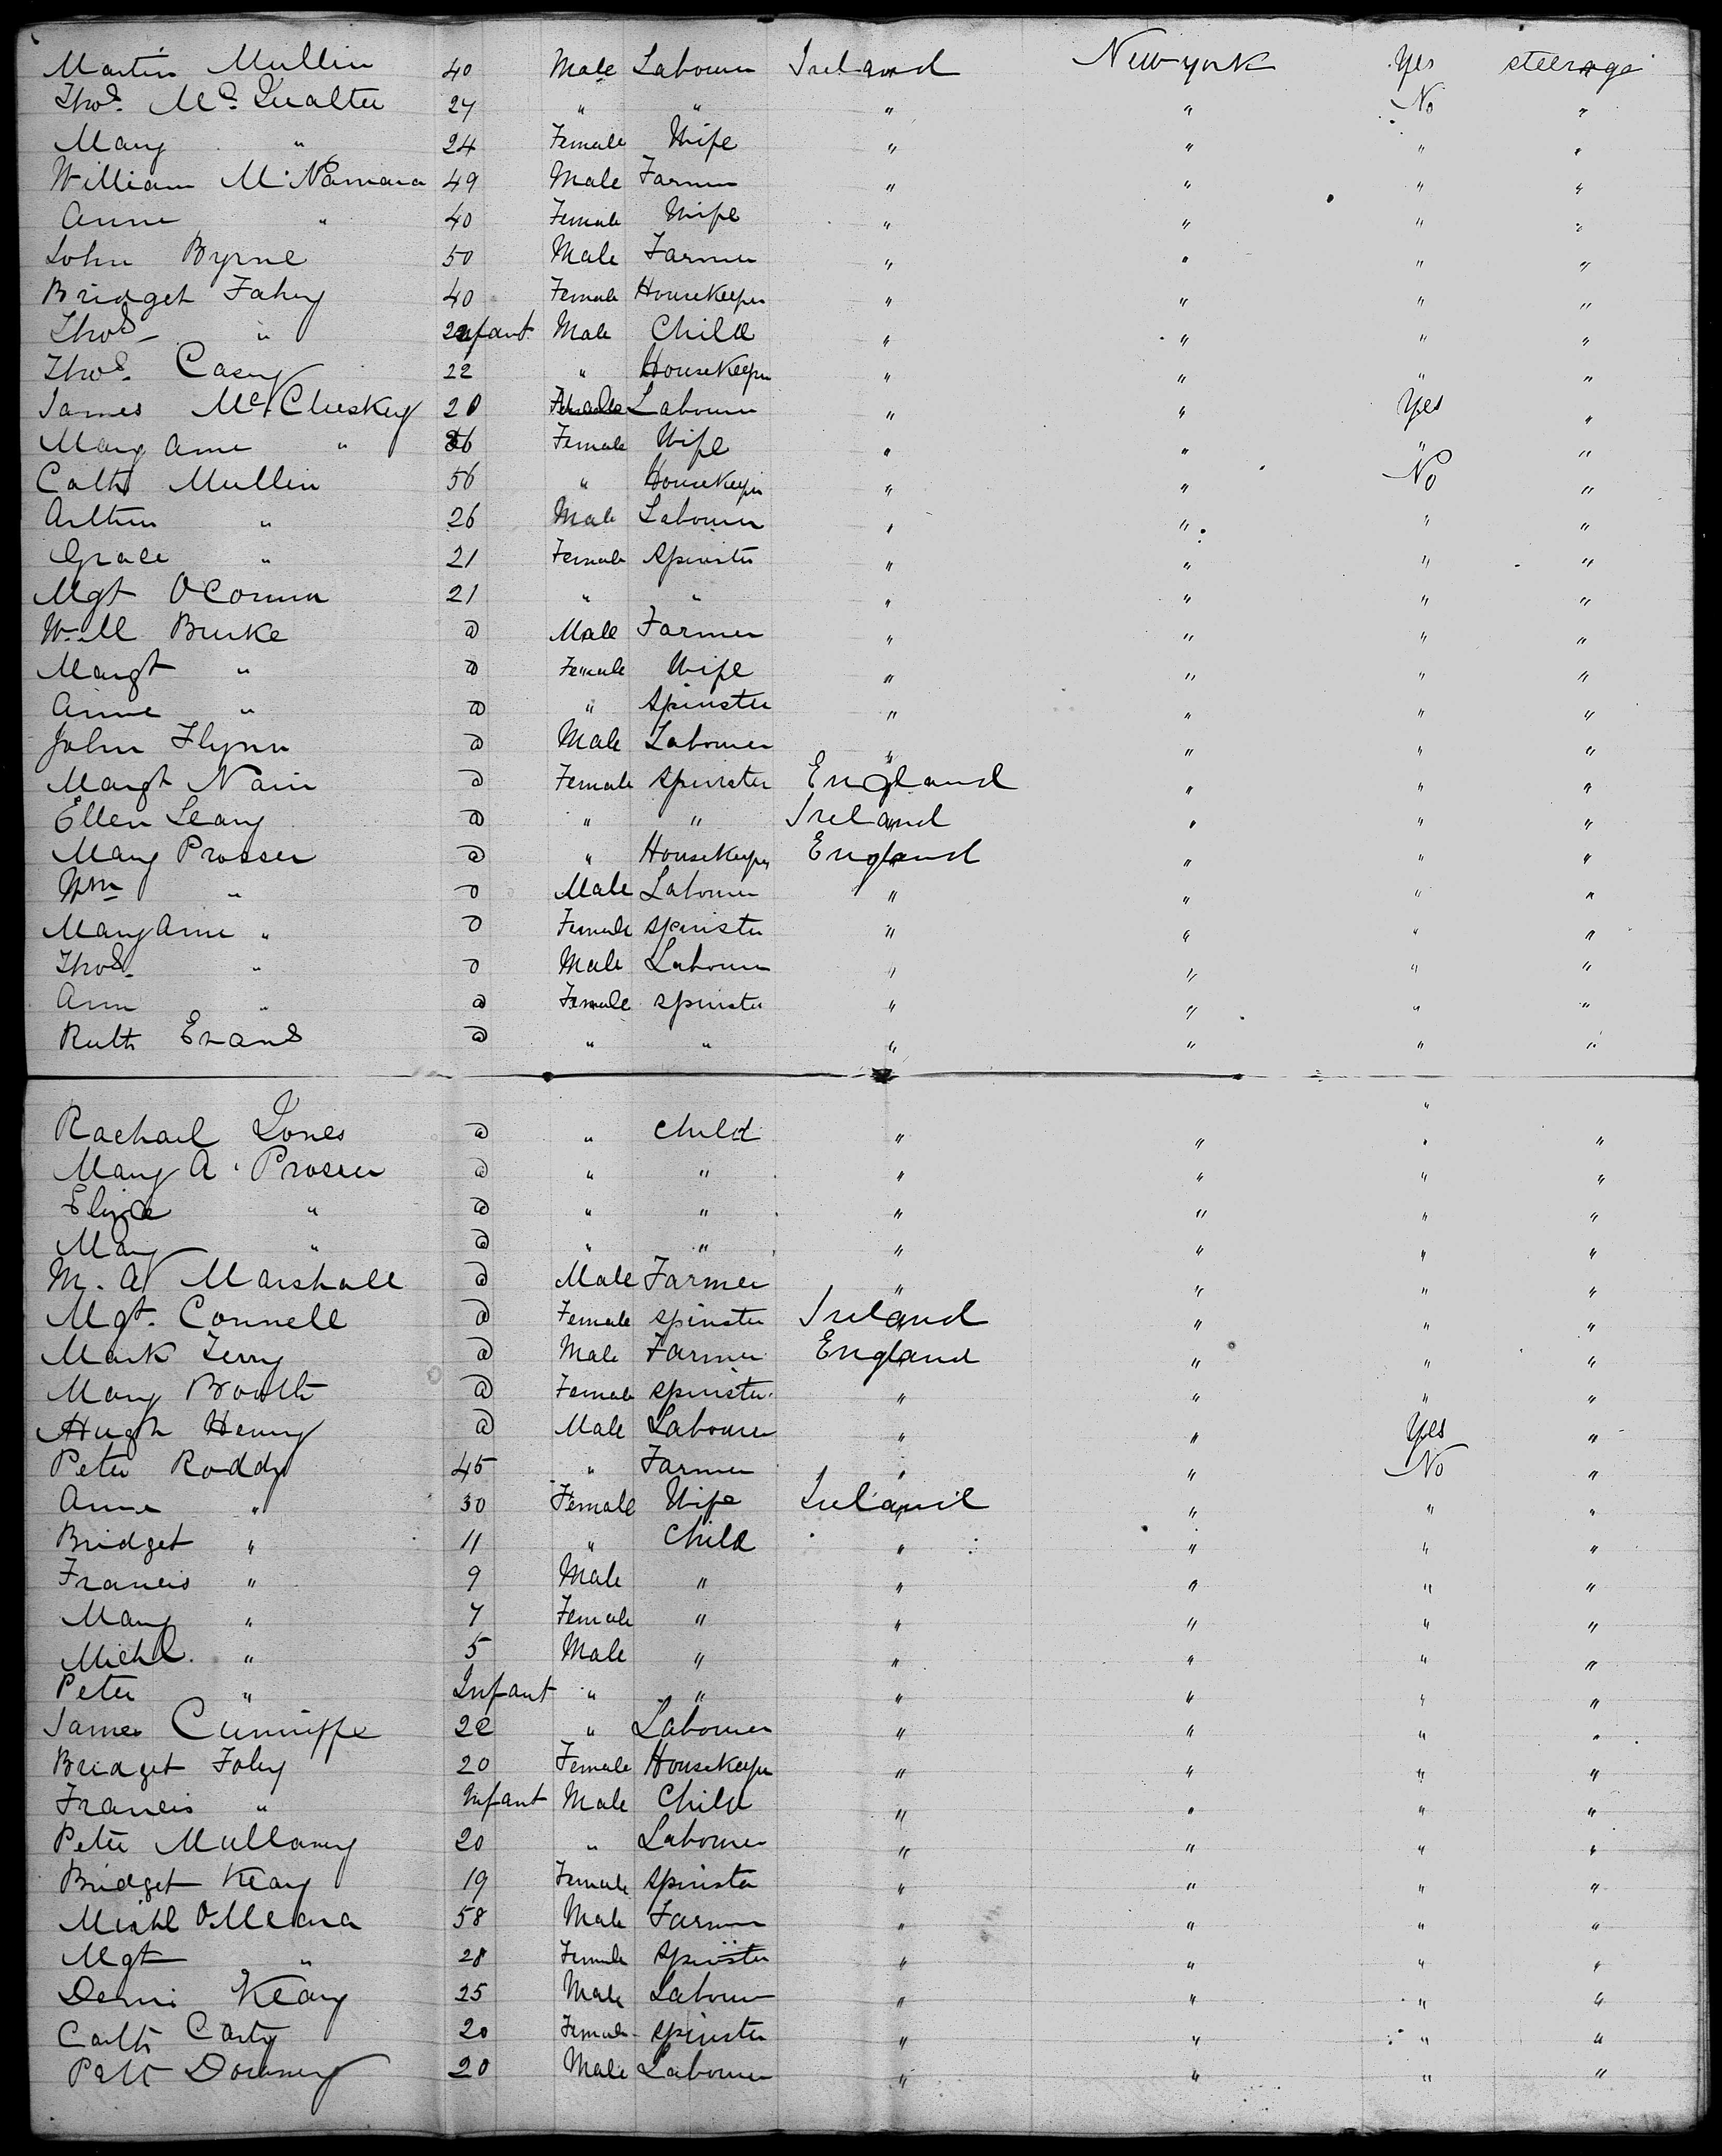 Martin Mullin 40 Male Labourer Ireland New york Yes steerage
Thos. Mc. Qualter 27 " " " " No "
Mary " 24 Female Wife " " " "
William McNamara 49 Male Farmer " " " "
Anne " 40 Female Wife " " " "
John Byrne 50 Male Farmer " " " "
Bridget Fahey 40 Female Housekeeper " " " "
Thos " Infant Male Child " " " "
Thos. Casey 22 " Housekeeper " " " "
James McCluskey 20 Male Labourer " " Yes "
Mary Anne " Female Wife " " " "
Cath Mullin 56 " Housekeeper " " No "
Arthur " 26 Male Labourer " " " "
Grace " 21 Female Spinster " " " "
Mgt OConnor 21 " " " " " "
Will Burke @ Male Farmer " " " "
Margt " @ Female Wife " " " "
Anne " @ " Spinster " " " "
John Flynn @ Male Labourer " " " "
Margt Nain @ Female Spinster England " " "
Ellen Leary @ " " Ireland " " "
Mary Prosser @ " Housekeeper England " " "
Wm " @ Male Labourer " " " "
Mary Anne " @ Female Spinster " " " "
Thos. " @ Male Labourer " " " "
Ann " @ Female spinster " " " "
Ruth Evans @ " " " " " "
Rachael Jones @ " child " " " "
Mary A. Prosser @ " " " " " "
Eliza " @ " " " " " "
Mary " @ " " " " " "
M. A Marshall @ Male Farmer " " " "
Mgt. Connell @ Female spinster Ireland " " "
Mark Terry @ Male Farmer England " " "
Mary Booth @ Female spinster " " " "
Hugh Henry @ Male Labourer " " Yes "
Peter Roddy 45 " Farmer " " No "
Anne " 30 Female Wife Ireland " " "
Bridget " 11 " Child " " " "
Francis " 9 Male " " " " "
Mary " 7 Female " " " " "
Michl. " 5 Male " " " " "
Peter " Infant " " " " " "
James Cunniffe 22 " Labourer " " " "
Bridget Foley 20 Female Housekeeper " " " "
Francis " Infant Male Child " " " "
Peter Mullaney 20 " Labourer " " " "
Bridget Keary 19 Female spinster " " " "
Michl OMeara 58 Male Farmer " " " "
Mgt " 28 Female spinster " " " "
Denis Keary 25 Male Labourer " " " "
Cath Carty 20 Female spinster " " " "
Patt Downey 20 Male Labourer " " " "